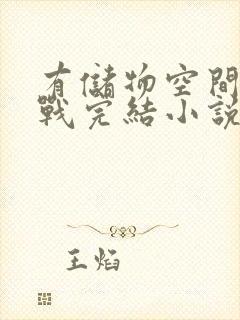 有儲物空間
戰完結小說
王焰